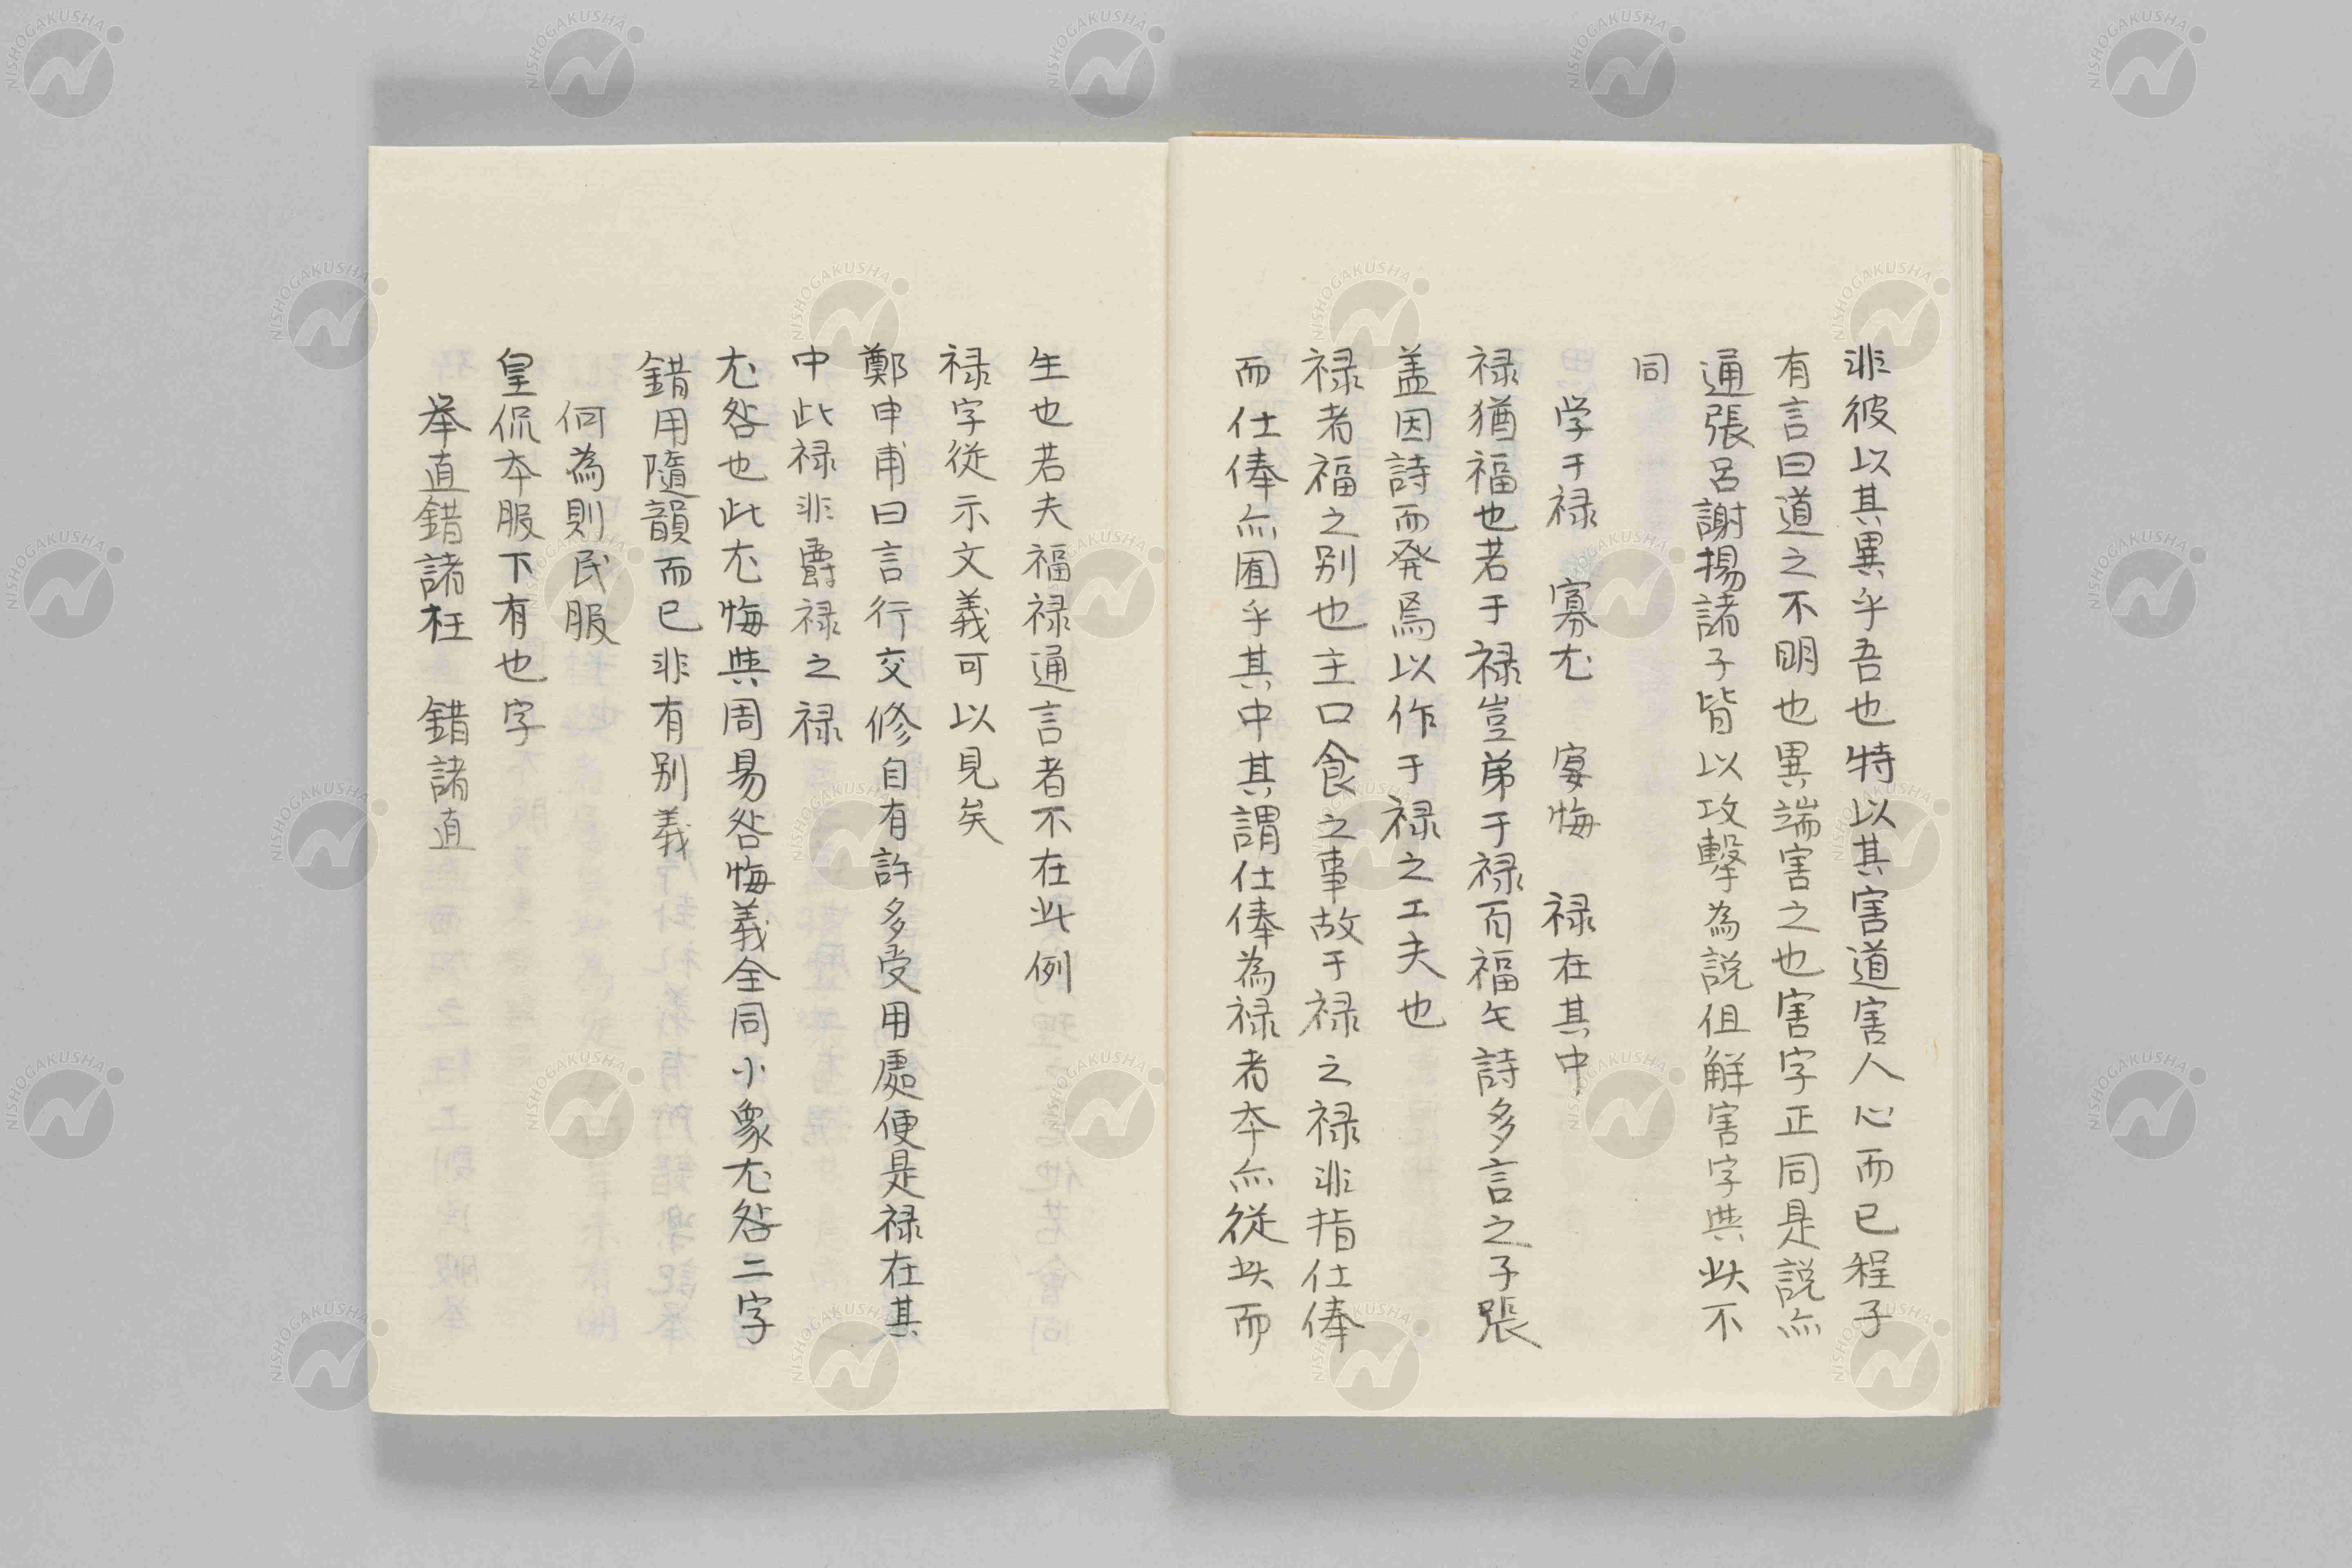 非彼以其異乎吾也特以其害道害人心而已程子
有言曰道之不明也異端害之也害字正同是説亦
通張呂謝揚諸子皆以攻擊為説但解害字與此不
同
学干禄　寡尤　寡悔　禄在其中
禄猶福也若干禄豈弟干禄百福乞詩多言之子張
盖因詩而発焉以作干禄之工夫也
禄者福之别也主口食之事故干禄之禄非指仕俸
而仕俸亦囿乎其中其謂仕俸為禄者夲亦従此而
生也若夫福禄通言者不在此例
禄字従示文義可以見矣
鄭申甫曰言行交修自有許多受用處便是禄在其
中此禄非爵禄之禄
尤咎也此尤悔與周易咎悔義全同小象尤咎二字
錯用隨韻而已非有别義
何為則民服
皇侃夲服下有也字
举直錯諸枉　錯諸直
NISHOGAKUSHA